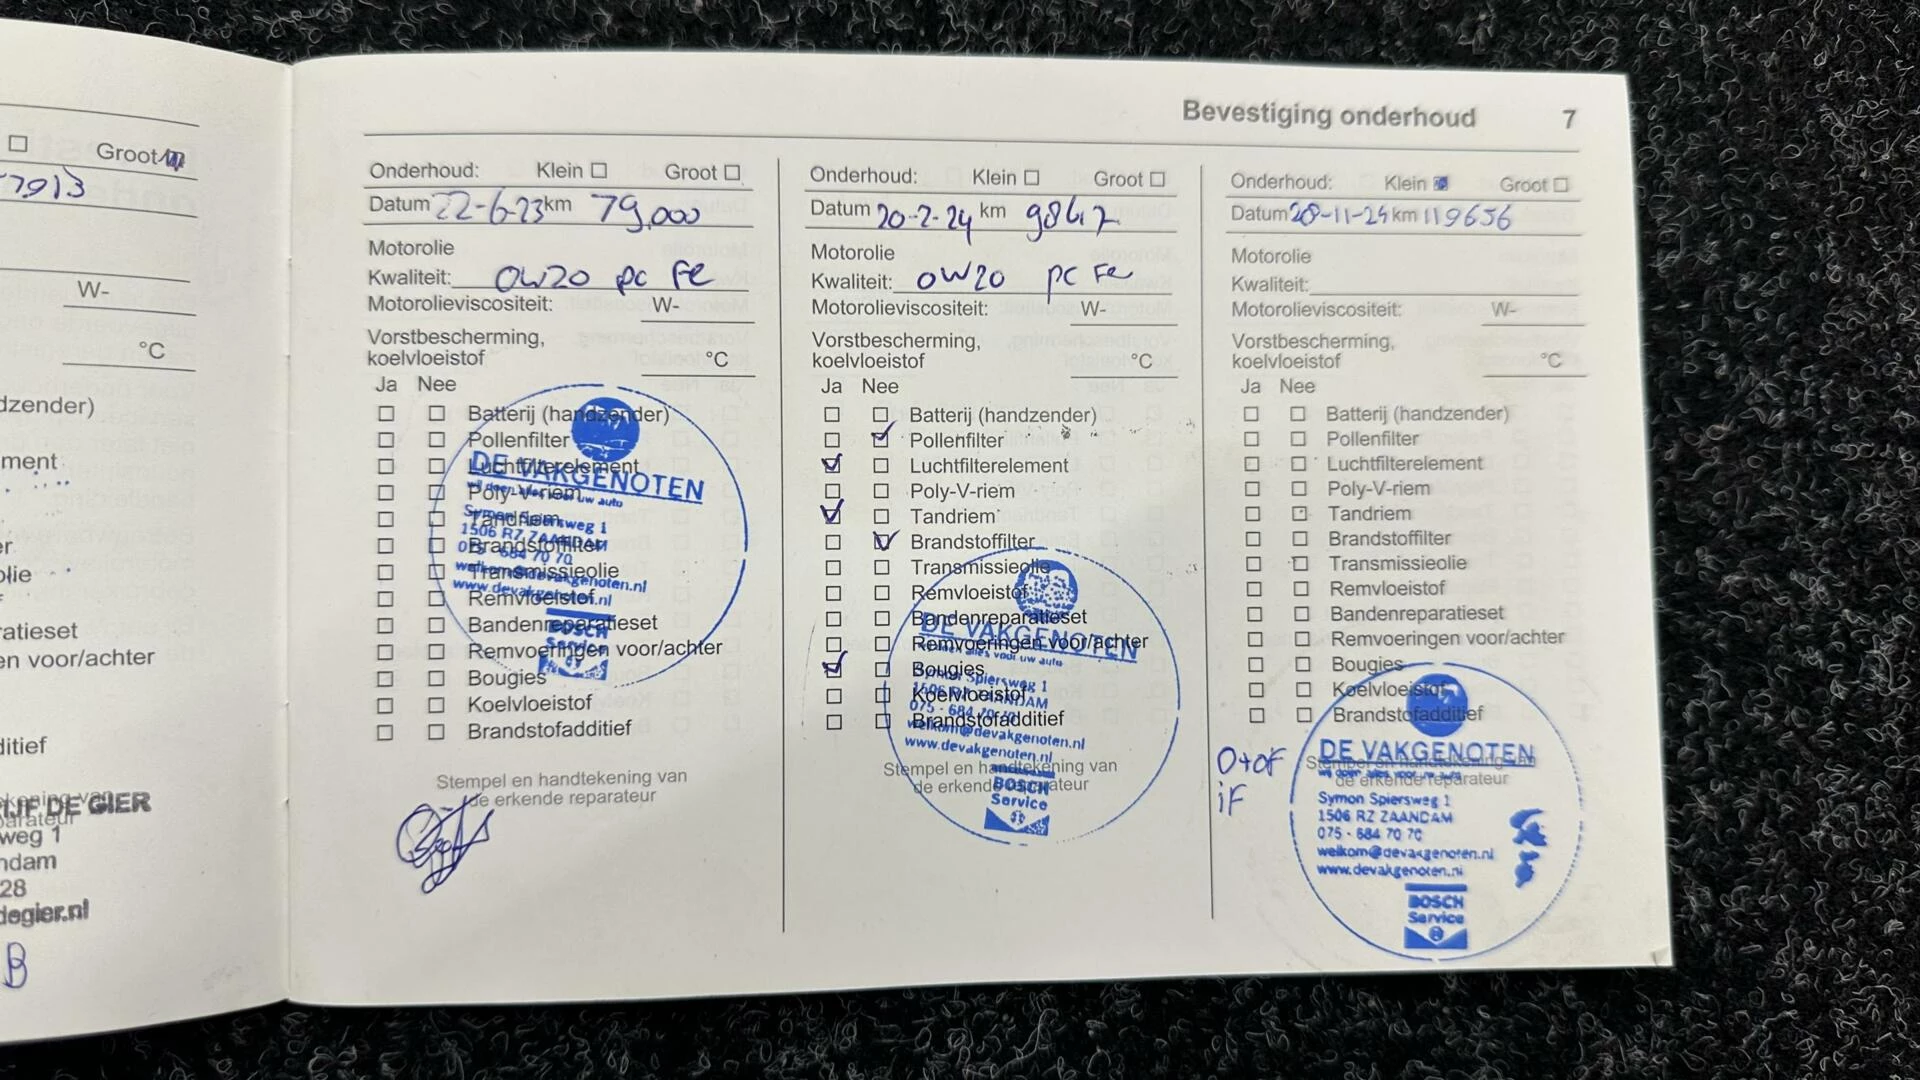 Groot
7913
W-
°C
dzender)
ment
er
olie
f
ratieset
en voor/achter
ditief
IJF DE GIER
weg 1
ndam
28
degier.nl
B
Bevestiging onderhoud 7
Onderhoud: Klein Groot
Datum 22-6-23 km 79,000
Motorolie
Kwaliteit: 0W20 pc Fe
Motorolieviscositeit: W-
Vorstbescherming,
koelvloeistof °C
Ja Nee
Batterij (handzender)
Pollenfilter
Luchtfilterelement
Poly-V-riem
Tandriem
Brandstoffilter
Transmissieolie
Remvloeistof
Bandenreparatieset
Remvoeringen voor/achter
Bougies
Koelvloeistof
Brandstofadditief
Stempel en handtekening van
de erkende reparateur
DE VAKGENOTEN
wij doen alles voor uw auto
Symon Spiersweg 1
1506 RZ ZAANDAM
075 - 684 70 70
welkom@devakgenoten.nl
www.devakgenoten.nl
BOSCH
Service
Onderhoud: Klein Groot
Datum 20-2-24 km
Motorolie
Kwaliteit: 0W20 pc Fe
Motorolieviscositeit: W-
Vorstbescherming,
koelvloeistof °C
Ja Nee
Batterij (handzender)
Pollenfilter
Luchtfilterelement
Poly-V-riem
Tandriem
Brandstoffilter
Transmissieolie
Remvloeistof
Bandenreparatieset
Remvoeringen voor/achter
Bougies
Koelvloeistof
Brandstofadditief
Stempel en handtekening van
de erkende reparateur
DE VAKGENOTEN
wij doen alles voor uw auto
Symon Spiersweg 1
1506 RZ ZAANDAM
075 - 684 70 70
welkom@devakgenoten.nl
www.devakgenoten.nl
BOSCH
Service
Onderhoud: Klein Groot
Datum 28-11-24 km 119656
Motorolie
Kwaliteit:
Motorolieviscositeit: W-
Vorstbescherming,
koelvloeistof °C
Ja Nee
Batterij (handzender)
Pollenfilter
Luchtfilterelement
Poly-V-riem
Tandriem
Brandstoffilter
Transmissieolie
Remvloeistof
Bandenreparatieset
Remvoeringen voor/achter
Bougies
Koelvloeistof
Brandstofadditief
O+OF
iF
Stempel en handtekening van
de erkende reparateur
DE VAKGENOTEN
wij doen alles voor uw auto
Symon Spiersweg 1
1506 RZ ZAANDAM
075 - 684 70 70
welkom@devakgenoten.nl
www.devakgenoten.nl
BOSCH
Service